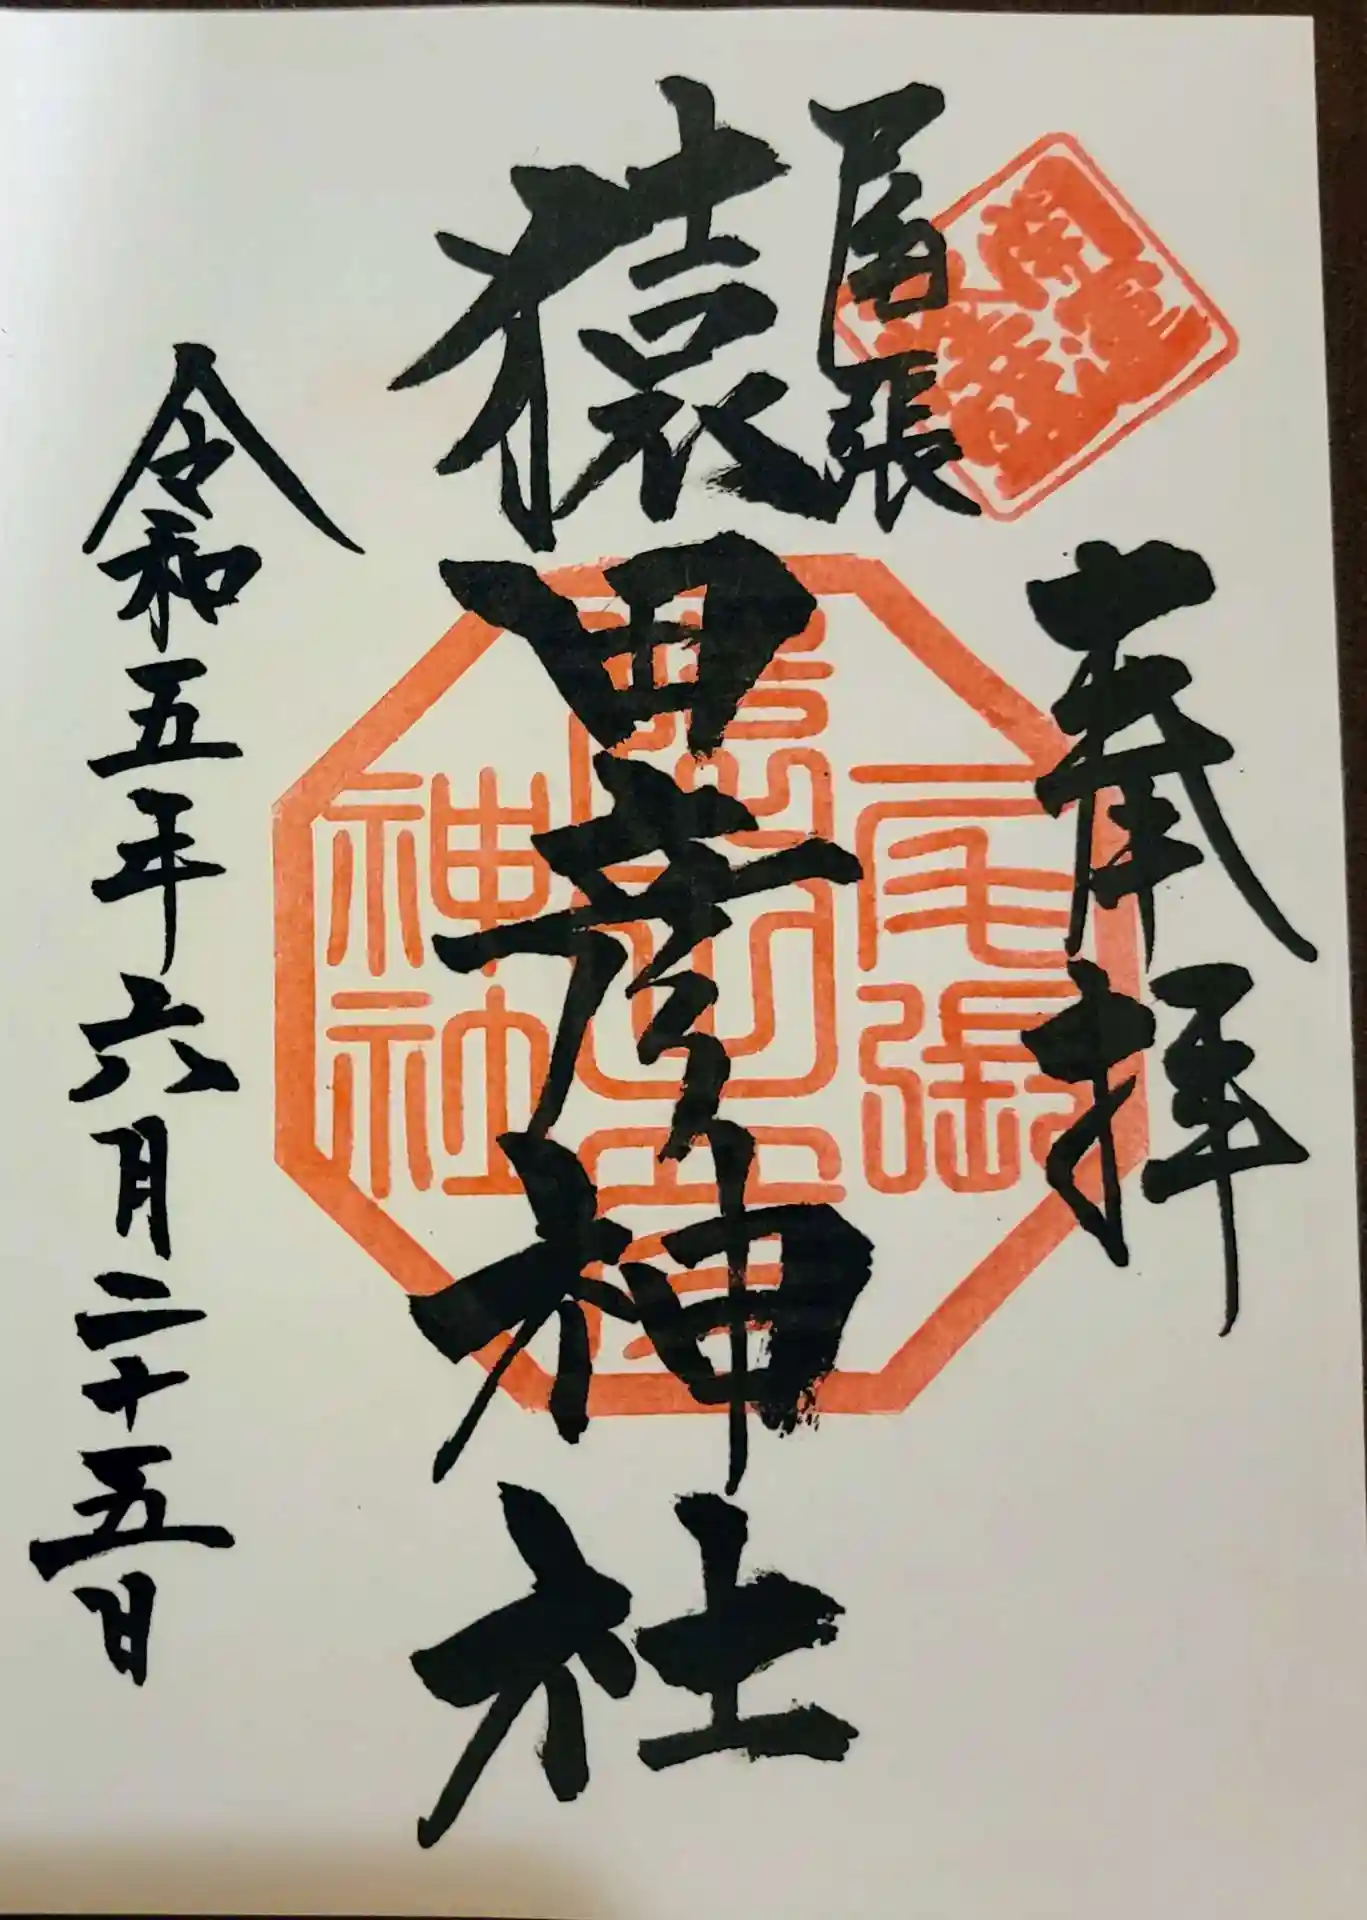 奉拝
尾張
猿田彦神社
令和五年六月二十五日
尾張
神社